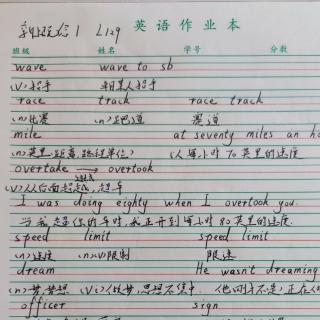 英语作业本
L129
班级 姓名 学号 分数
wave wave to sb
(v)招手 朝某人招手
race track race track
(n)比赛 (n)跑道 赛道
mile at seventy miles an ho
(n)英里 (以每小时70英里的速度
overtake → overtook
(v)从后面超越,超车
I was doing eighty when I overtook you.
当我超你的车时,我正开到每小时80英里的速度.
speed limit speed limit
(n)速度 (n)(v)限制 限速
dream He wasn't dreaming
(n)梦,梦想 (vi)做梦,思想不集中.
officer sign